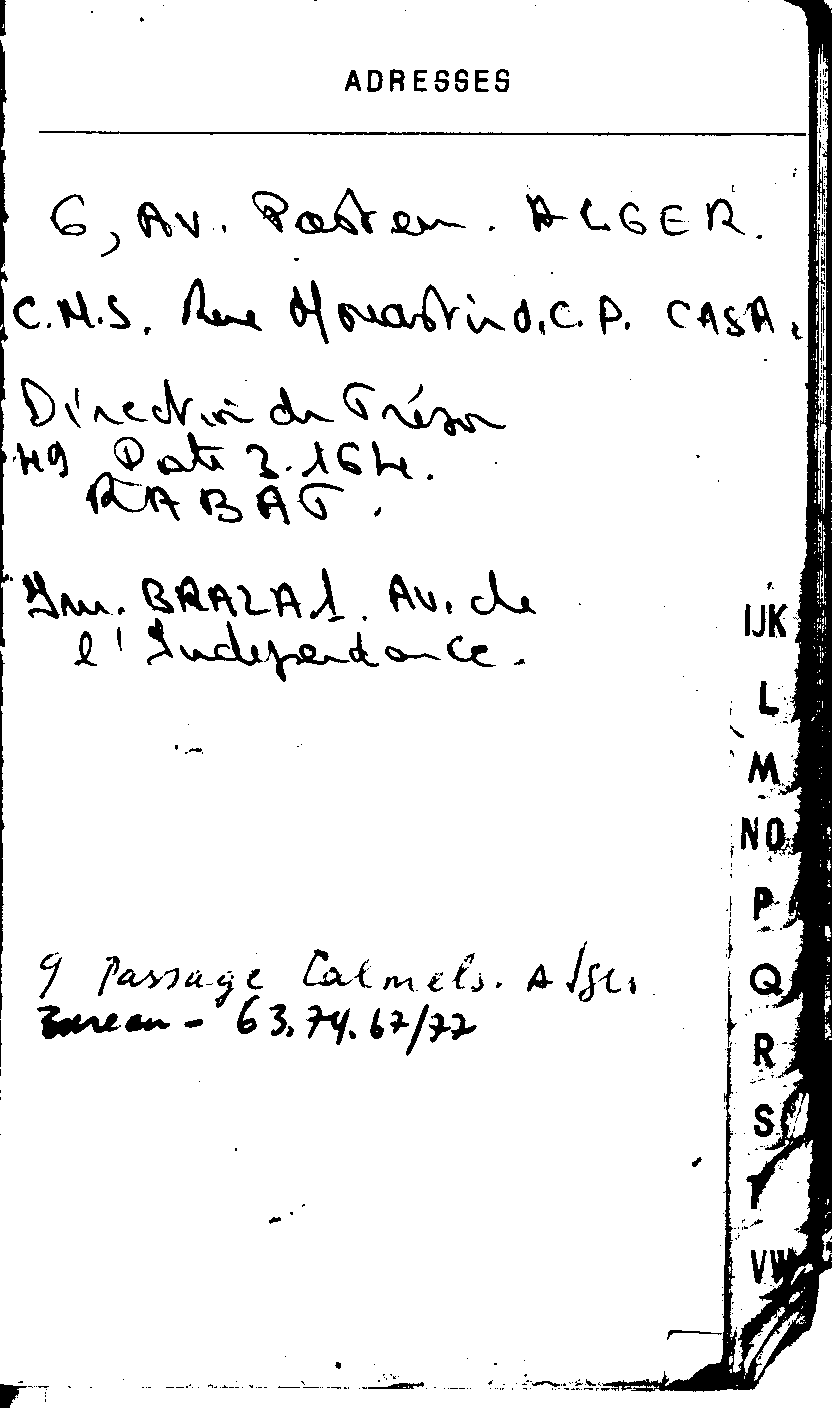 ADRESSES
6, AV. Pasteur. ALGER.
C.M.S. Rue O.C.P. CASA.
Direction du Trésor
49 Date 3.164.
RABAT.
Imm. BRAZA 1. AV. de
l'Independance.
9 Passage Calmels. Alger
Bureau - 63.74.67/77
IJK
L
M
NO
P
Q
R
S
T
VW